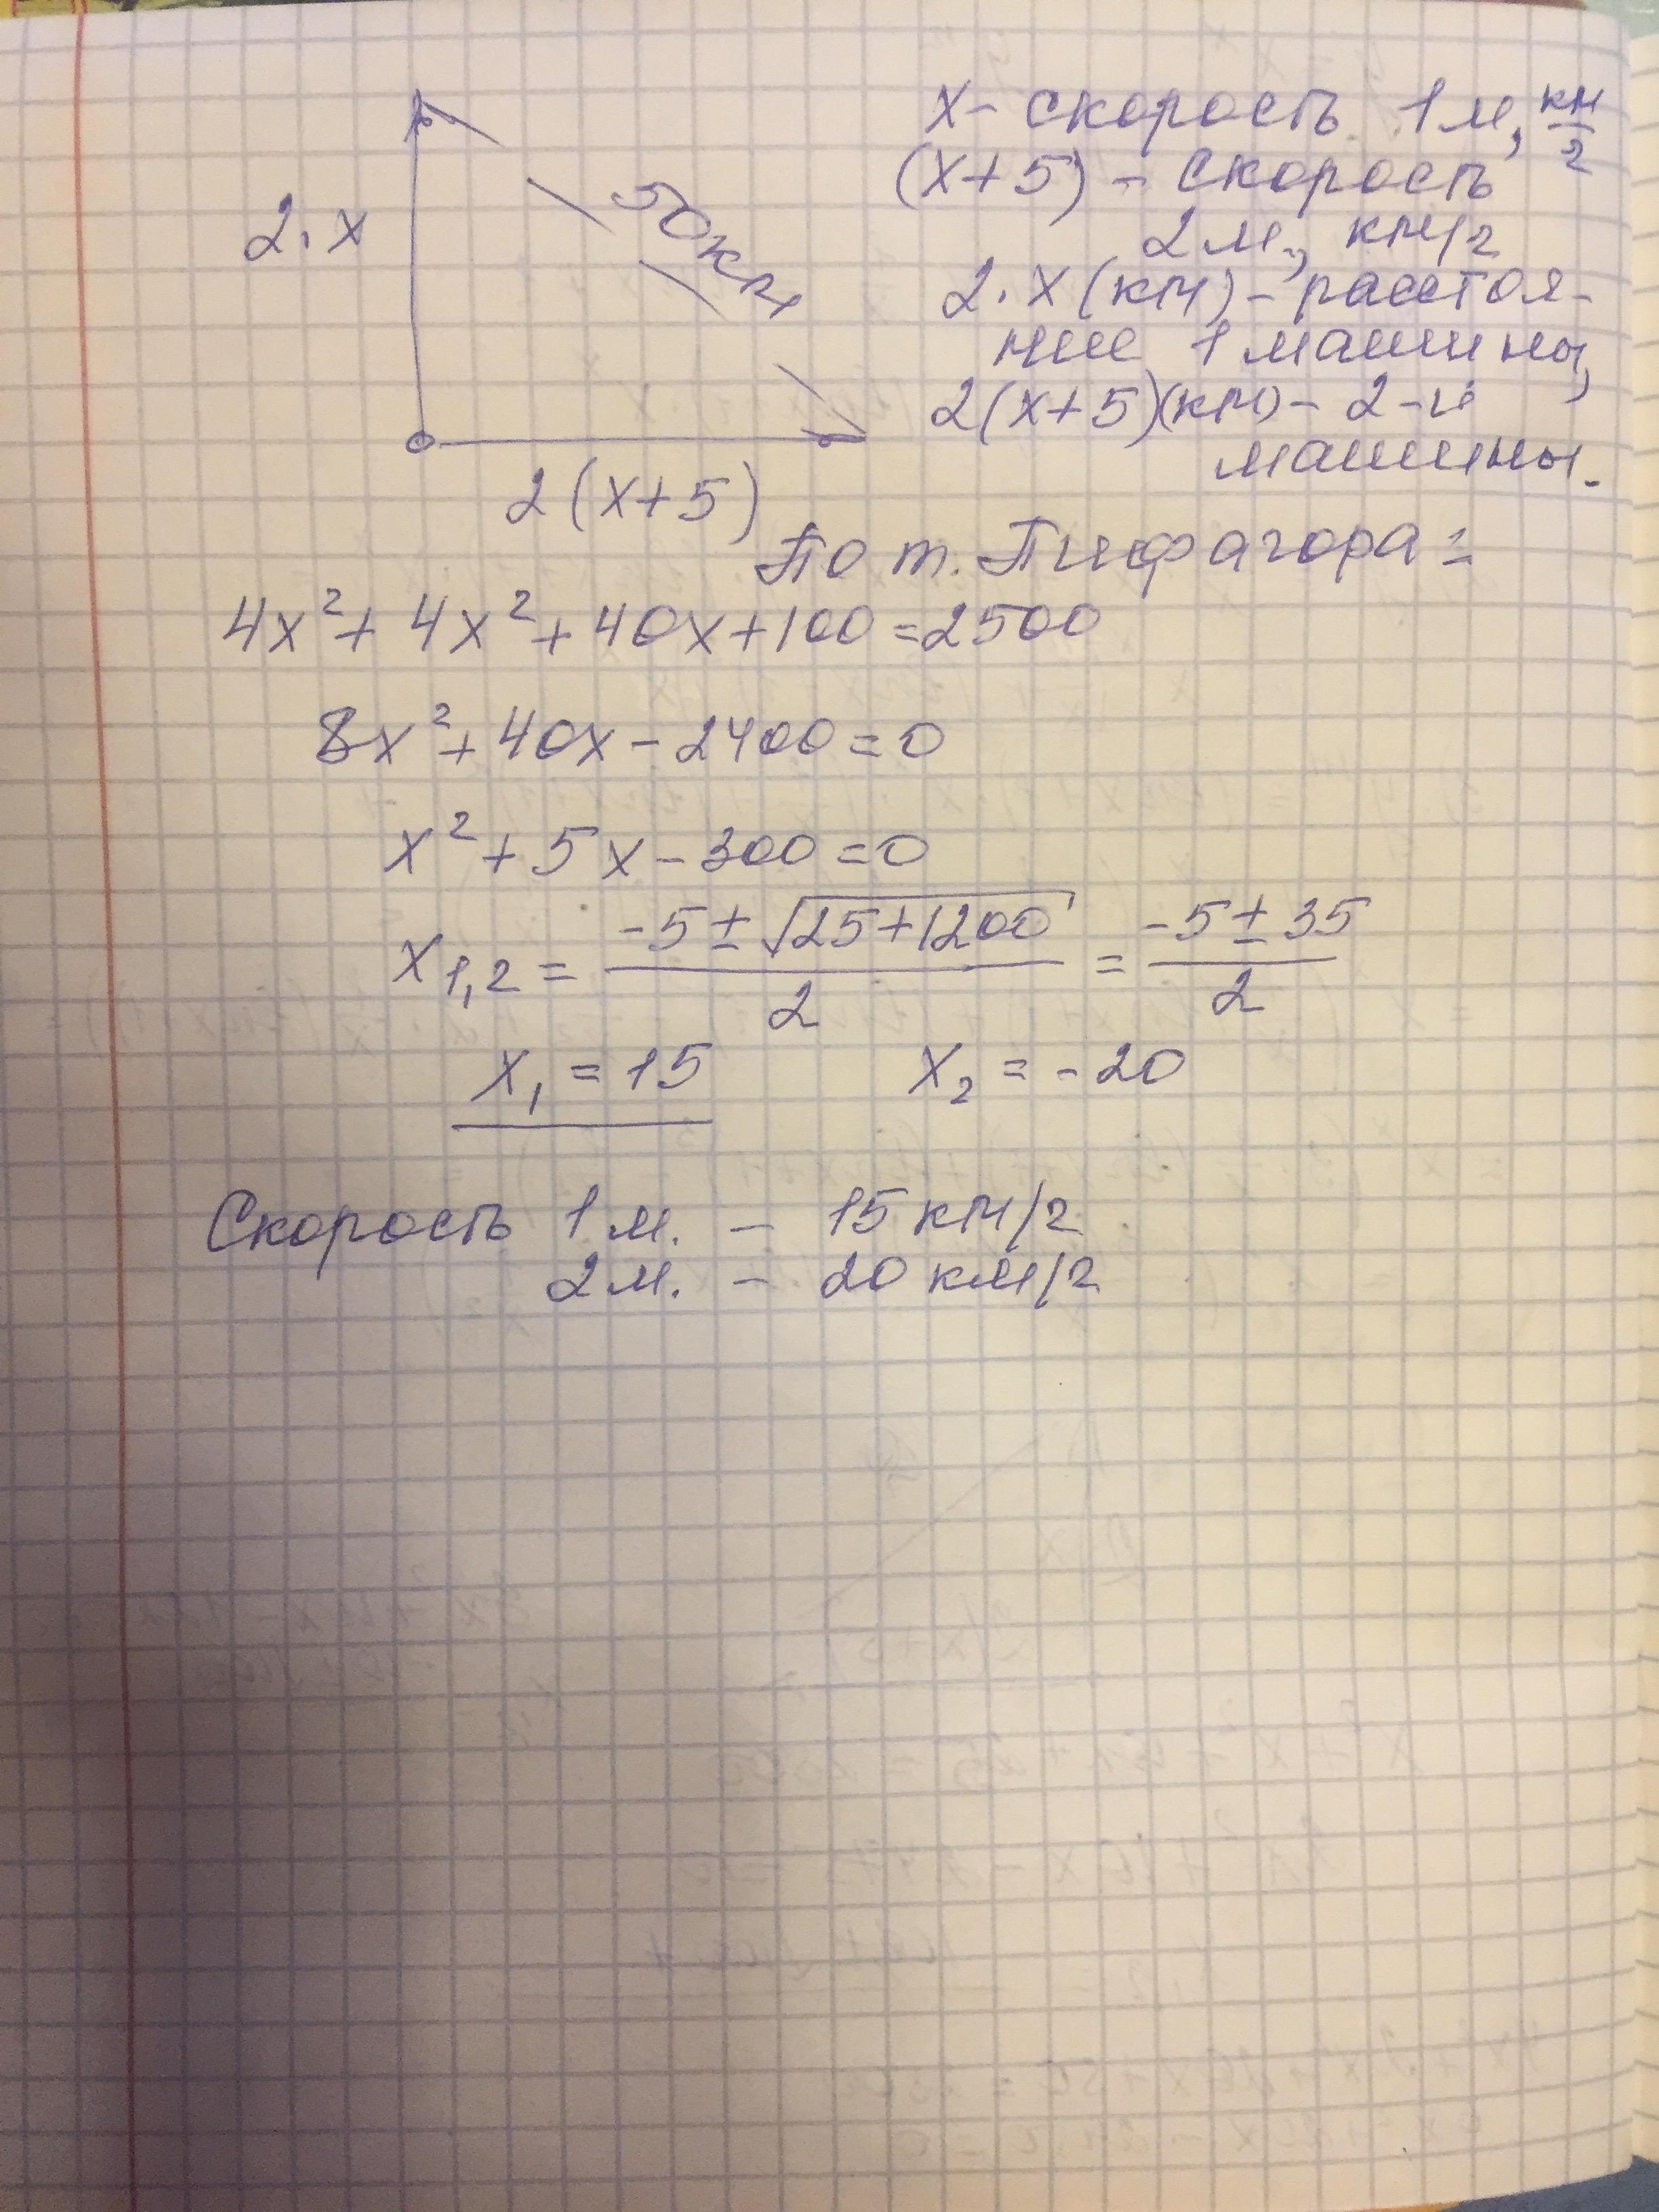 2·x
50км
2(x+5)
x – скорость 1 м, км/г
(x+5) – скорость
2 м., км/г
2·x (км) – расстоя-
ние 1 машины,
2(x+5)(км) – 2-й
машины.
По т. Пифагора:
4x² + 4x² + 40x + 100 = 2500
8x² + 40x – 2400 = 0
x² + 5x – 300 = 0
x₁,₂ = (-5 ± √(25+1200))/2 = (-5 ± 35)/2
x₁ = 15 x₂ = -20
Скорость 1 м. – 15 км/г
2 м. – 20 км/г